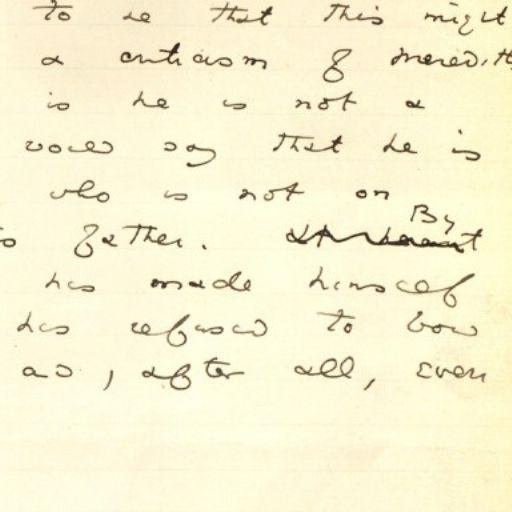 to me that this might
a criticism of Meredith
is he is not a
would say that he is
who is not on
father. By
has made himself
has refused to bow
and, after all, even